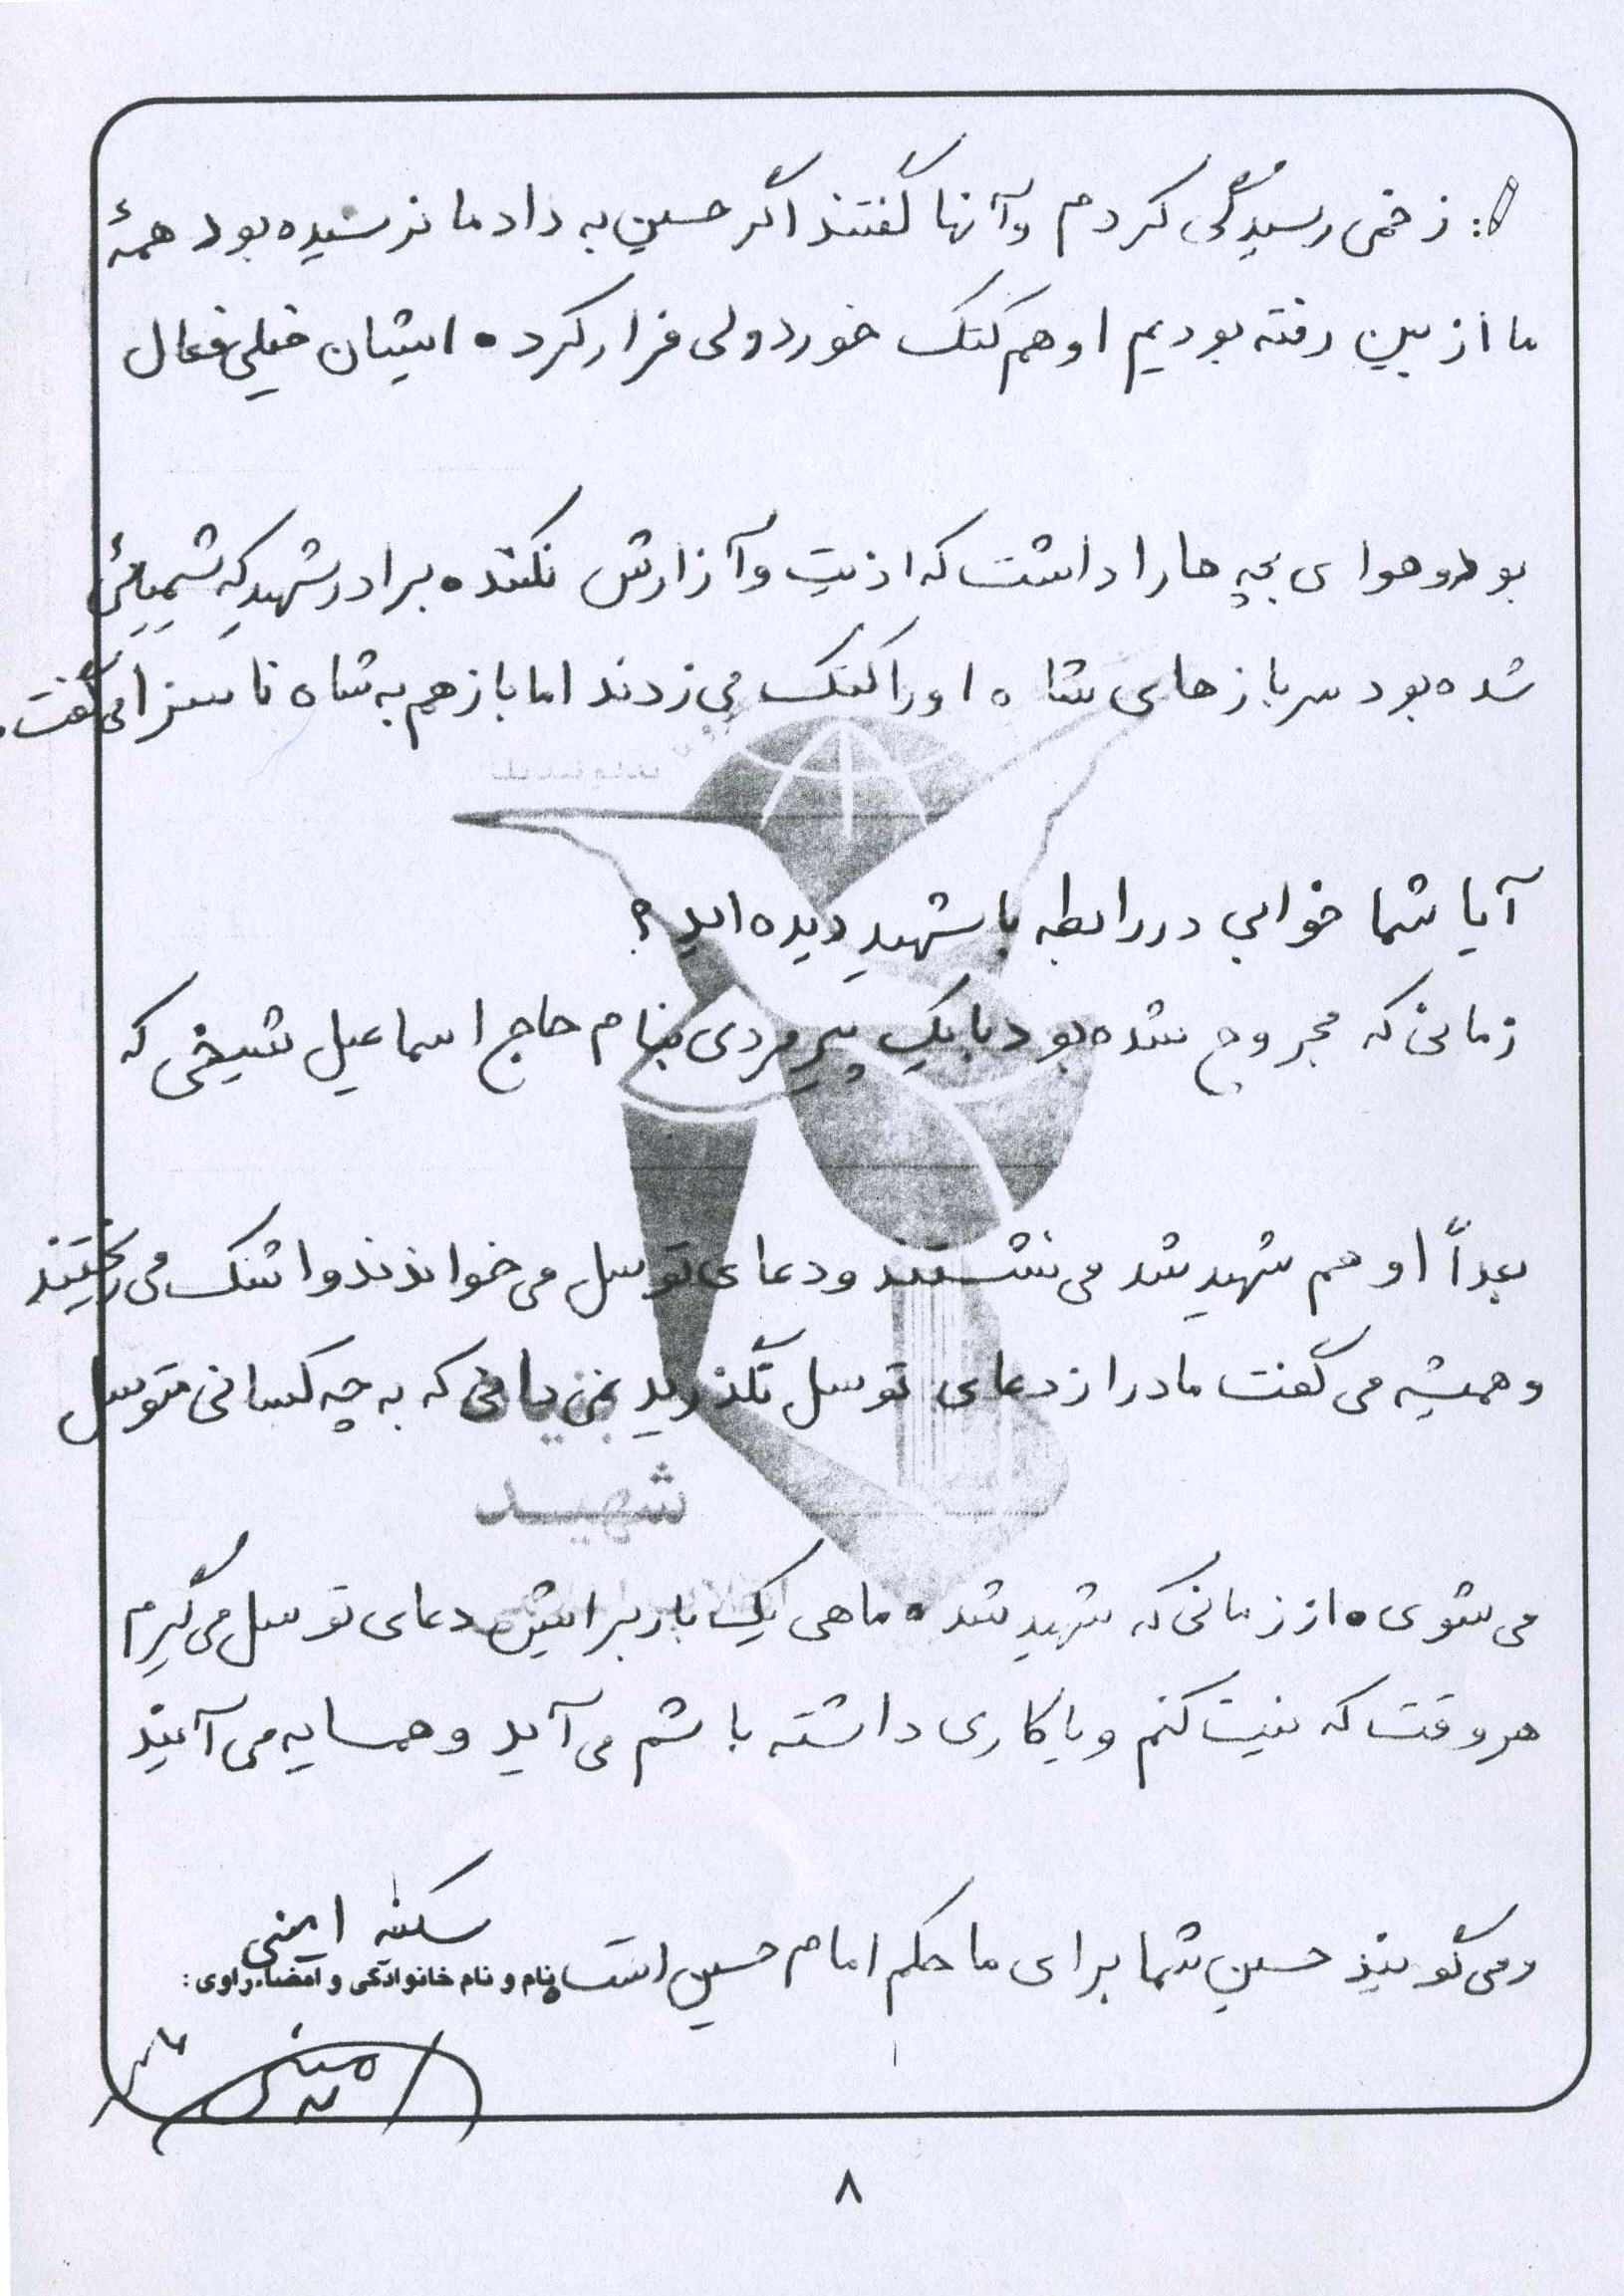 : زخمی رسیدگی کردم و آنها گفتند اگر حسین به داد ما نرسیده بود همهٔ
ما از بین رفته بودیم او هم کتک خورد ولی فرار کرد ه ایشان خیلی فعال
بود و هوای بچه ها را داشت که اذیت و آزارش نکنند ه برادر شهید که شیمیائی
شده بود سربازهای شاه او را کتک می زدند اما باز هم به شاه ناسزا می گفت.
آیا شما خوابی در رابطه با شهید دیده اید ؟
زمانی که مجروح شده بود با یک پیرمردی بنام حاج اسماعیل شیخی که
بعداً او هم شهید شد می نشستند و دعای توسل می خواندند و اشک می ریختند
و همیشه می گفت مادر از دعای توسل نگذرید نمی دانی که به چه کسانی متوسل
شهید
می شوی ه از زمانی که شهید شده ماهی یک بار برایش دعای توسل می گیرم
هر وقت که نیت کنم و یا کاری داشته باشم می آید و همسایه می آیند
و می گویند حسین شما برای ما حکم امام حسین است ه
سکینه امینی
نام و نام خانوادگی و امضاء راوی :
۸